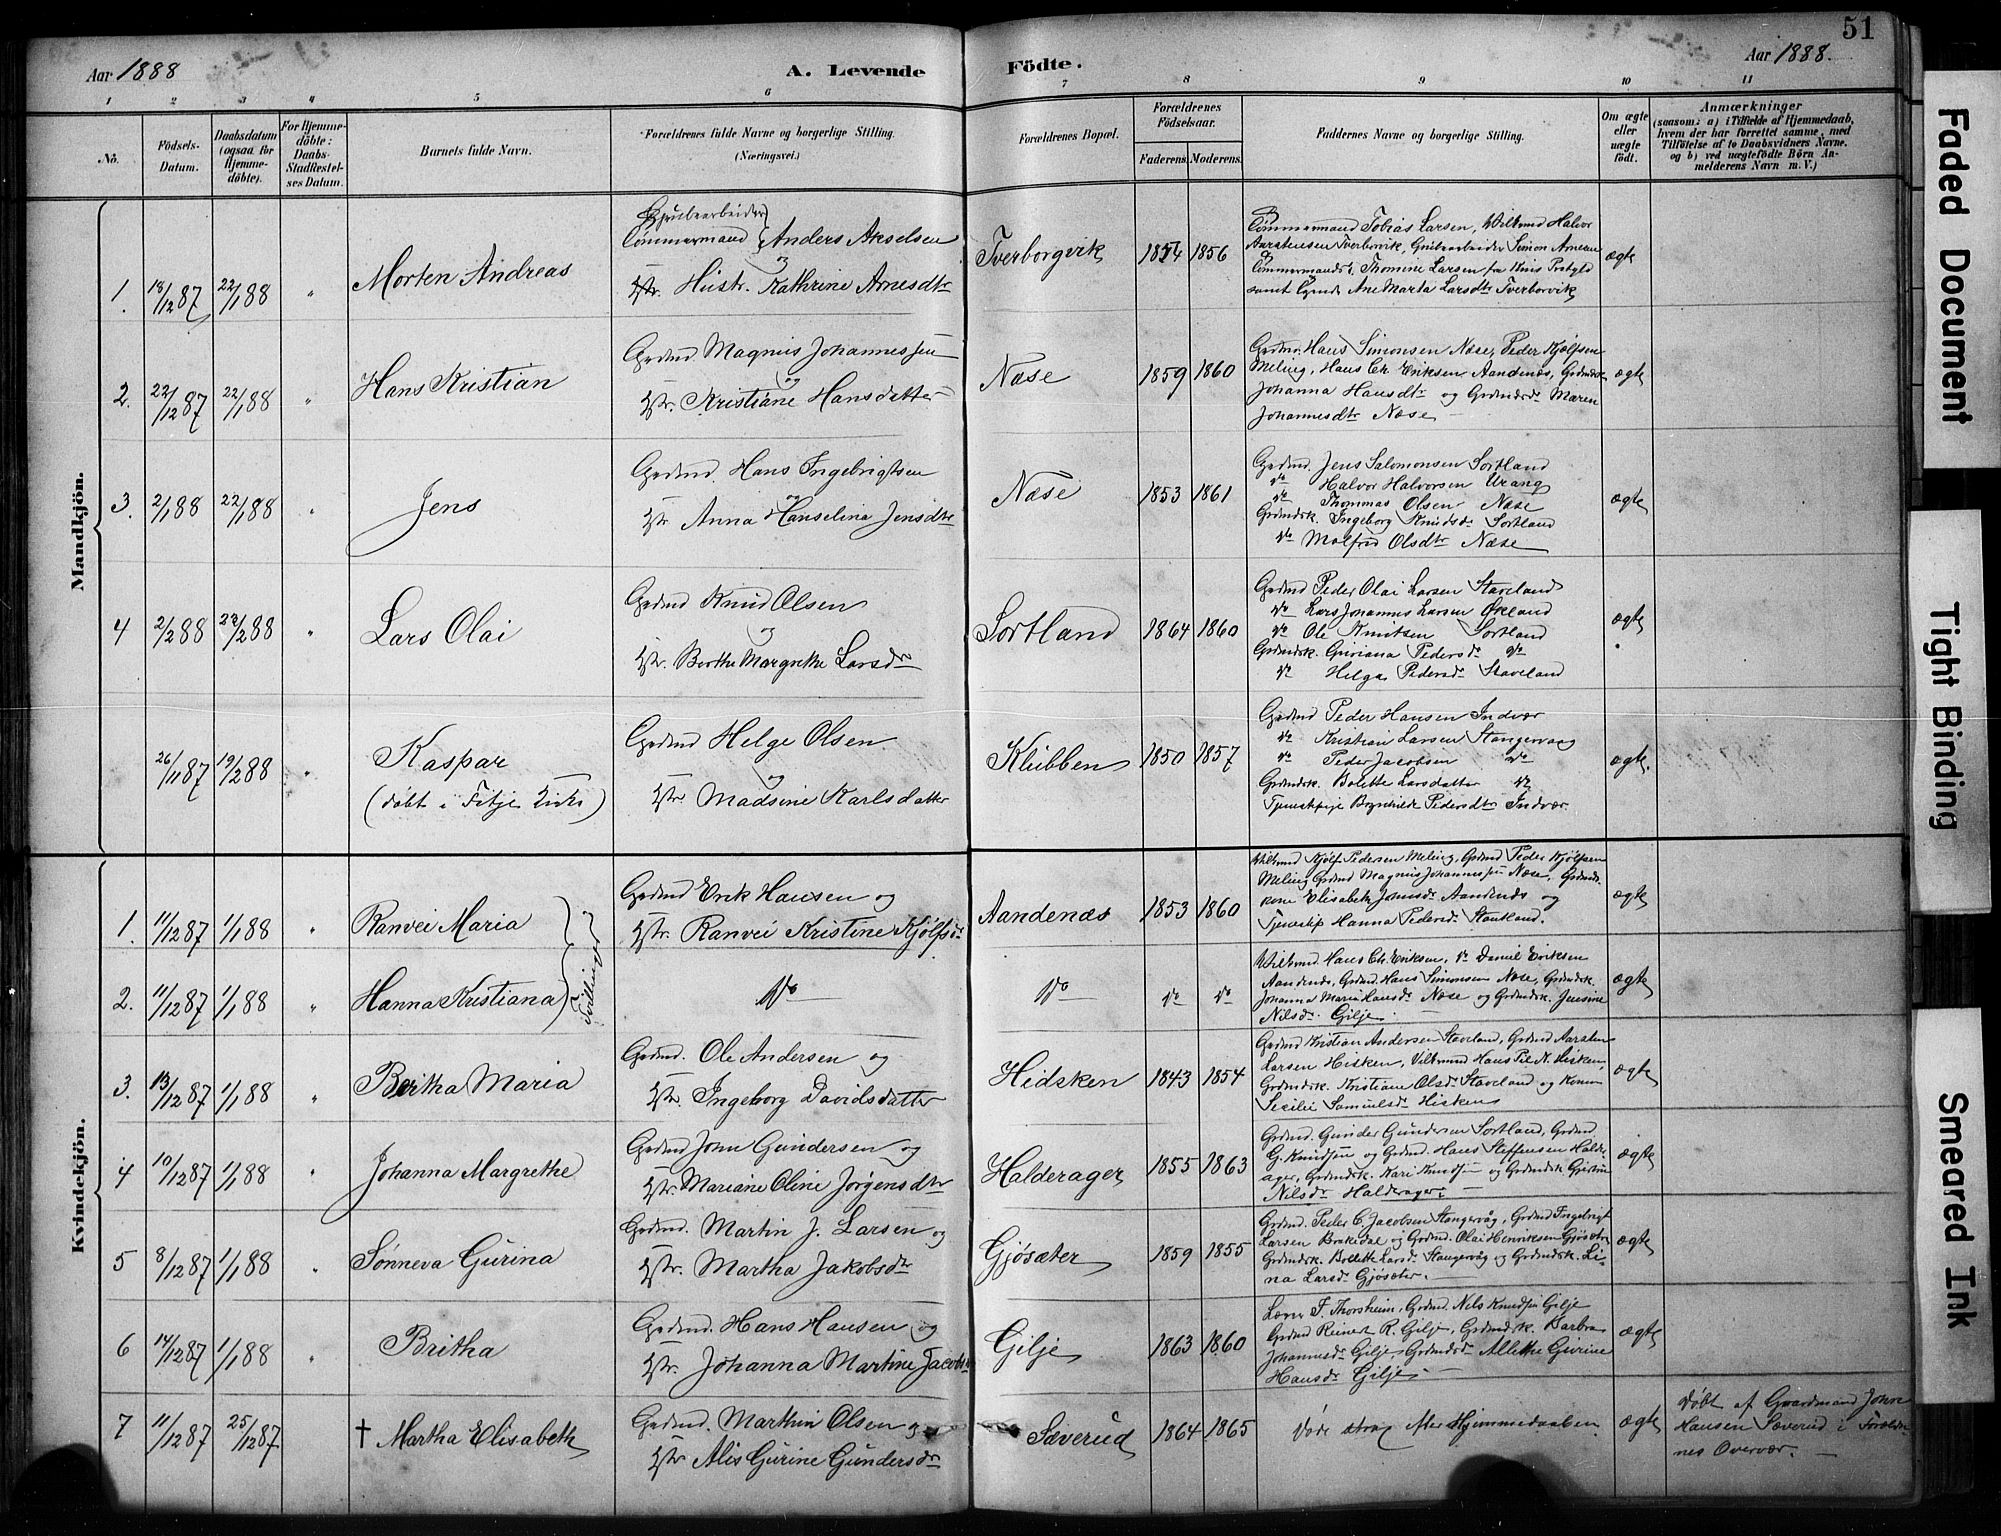 51
Aar 1888
A. Levende
Födte.
Aar 1888.
1 2 3 4 5 6 7 8 9 10 11
No.
Födsels-
Datum.
Daabsdatum
(ogsaa for
Hjemme-
döbte).
For Hjemme-
döbte:
Daabs-
Stadfæstel-
ses Datum.
Barnets fulde Navn.
Forældrenes fulde Navne og borgerlige Stilling.
(Næringsvei.)
Forældrenes Bopæl.
Forældrenes
Födselsaar.
Faderens. Moderens.
Faddernes Navne og borgerlige Stilling.
Om ægte
eller
uægte
födt.
Anmærkninger
(saasom: a) i Tilfælde af Hjemmedaab,
hvem der har forrettet samme, med
Tilföielse af to Daabsvidners Navne.
og b) ved uægtefödte Börn An-
melderens Navn m. V.)
Mandkjön.
1. 18/12 87 22/1 88 " Morten Andreas
Grubearbeider
Tømmermand Anders Akselsen
og
Hustr. Kathrine Arnesdtr
Tverborgvik 1854 1856
Tømmermand Tobias Larsen, Halvor
Aarstensen Tverborvik, Grubearbeider Simon Arnesen
Tømmermands. Thomine Larsen fra
samt Ane Marta Larsdtr Tverborvik
ægte
2. 22/12 87 22/1 88 " Hans Kristian
Grdmd Magnus Johannessen
og
Hstr. Kristiane Hansdatter
Næse 1859 1860
Grdmd. Hans Simonsen Næse, Peder Kjølfsen
Meling, Hans Chr. Eriksen Aandenæs, Grdmdsk.
Johanna Hansdtr og Grdmdsd. Maren
Johannesdtr Næse
ægte
3. 2/1 88 22/1 88 " Jens
Grdmd. Hans Ingebrigtsen
og
Hstr Anna Hanselina Jensdtr
Næse 1853 1861
Grdmd. Jens Salomonsen Sortland
do Halvor Halvorsen Urang
do Thommas Olsen Næse
Grdmdsk. Ingeborg Knudsd. Sortland
do Malfrid Olsdtr Næse
ægte
4 2/2 88 22/2 88 " Lars Olai
Grdmd Knud Olsen
og
Hstr. Berthe Margrethe Larsdr
Sortland 1864 1860
Grdmd Peder Olai Larsen Staveland
do Lars Johannes Larsen Økland
do Ole Knutsen Sortland
Grdmdsk. Guriana Pedersd. do
do Helga Pedersd. Staveland
ægte
26/11 87 19/2 88 " Kaspar
(døbt i Fitje Kirke)
Grdmd Helge Olsen
og
Hstr. Madsine Karlsdatter
Klubben 1850 1857
Grdmd Peder Hansen Indvær
do Kristian Larsen Stangervaag
do Peder Jacobsen do
Grdmdsk. Bolette Larsdatter do
Tjenestpige Brynhilde Pedersdtr Indvær.
ægte.
Kvindekjön.
1. 11/12 87 1/1 88 " Ranvei Maria
Tvillinger
Grdmd Erik Hansen og
Hstr. Ranvei Kristine Kjølfsdr
Aandenæs 1853 1860
Kjølf Pedersen Meling, Grdmd Peder Kjølfsen
Meling Grdmd Magnus Johannessen Næse, Grdmds-
kone Elisabeth Jonsdr Aandenæs og
Tjenestep Hanna Pedersd.
ægte
2. 11/12 87 1/1 88 " Hanna Kristiana
do do do do
Hans Chr. Eriksen, do Daniel Eriksen
Aandenæs, Grdmd. Hans Simonsen Næse, Grdmdsk.
Johanna Maria Hansdr Næse og Grdmdsk. Jensine
Nilsdr. Gilje.
ægte
3. 13/12 87 1/1 88 " Britha Maria
Grdmd. Ole Andersen og
Hstr. Ingeborg Davidsdatter
Hidsken 1843 1854
Grdmd Kristian Andersen Staveland, Grdmd Aarsten
Larsen Hisken, Hans Hisken,
Grdmdsk. Kristiane Olsd. Staveland og Konen
Sesilie Samuelsdr. Hisken
ægte
4 10/12 87 1/1 88 " Johanna Margrethe
Grdmd John Gundersen og
Hstr. Mariane Oline Jørgensdtr
Halderager 1855 1863
Grdmd. Gunder Gundersen Sortland, Grdmd
G. Knudsen og Grdmd. Hans Steffensen Halde-
ager, Grdmdsk. Kari Knudsen og Grdmdsk
Nilsdr Halderager.
ægte
5 8/12 87 1/1 88 " Sønneva Gurina
Grdmd. Martin J. Larsen og
Hstr. Martha Jakobsdr
Gjøsæter 1859 1855
Grdmd. Peder C. Jacobsen Stangervåg, Grdmd Ingebrigt
Larsen Brakedal og Grdmd. Olai Henriksen Gjøsæter
Grdmdsk. Bolette Larsd. Stangervåg og Grdmdsk. Li-
na Larsdr Gjøsæter.
ægte
6 14/12 87 1/1 88 " Britha
Grdmd. Hans Hansen og
Hstr. Johanna Martine Jacobsd
Gilje 1863 1860
Lærer F. Thorsheim, Grdmd. Nils Knudsen Gilje
Grdmd Reinert R. Gilje, Grdmdsk. Barbra
Johannesdr Gilje Grdmdsdr Allette Gurine
Hansdr Gilje
ægte
7 11/12 87 25/12 87. † Martha Elisabeth
Grdmd. Marthin Olsen og
Hstr Alis Gurine Gundersdr
Sæverud 1864 1865
Døde strax efter Hjemmedaaben.
ægte
Døbt af Gaardmand John
Hansen Sæverud i Foreldre-
nes Overvær.
Faded Document
Tight Binding
Smeared Ink